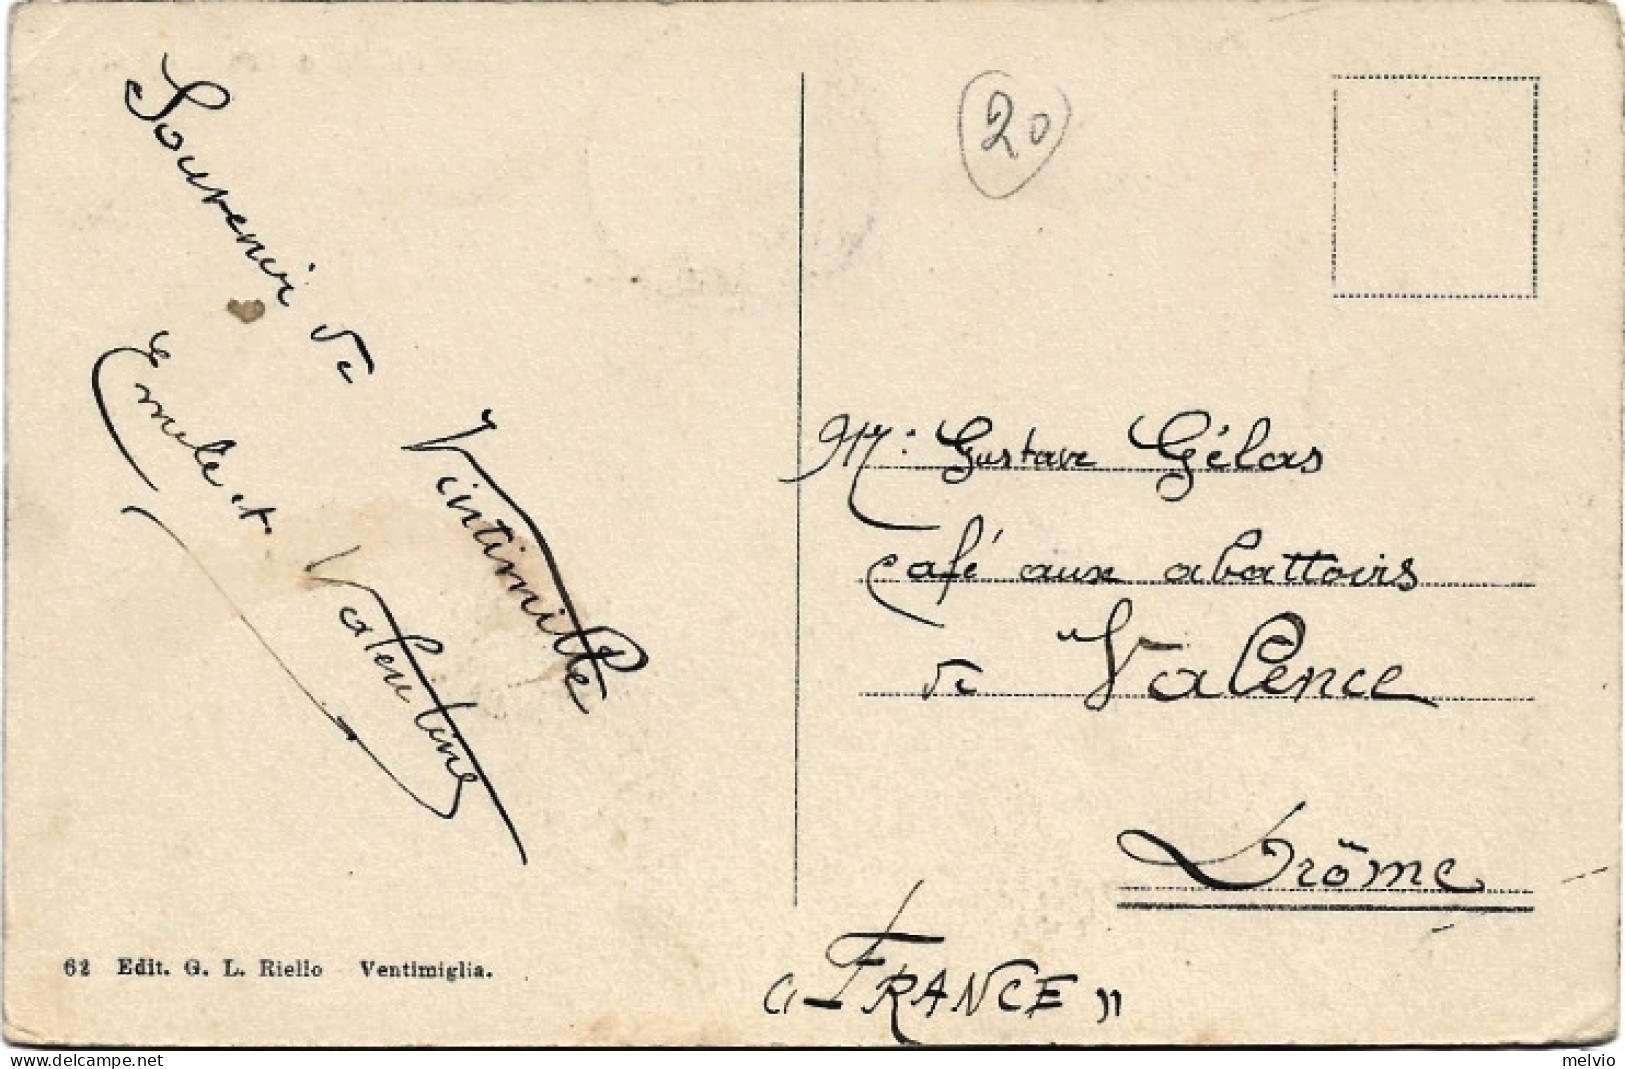 20
Souvenir de
Vintimille
Emile et Valentine
Mr: Gustave Gélas
Café aux abattoirs
de Valence
Drôme
"FRANCE"
62 Edit. G. L. Riello Ventimiglia.
delcampe.net
melvio